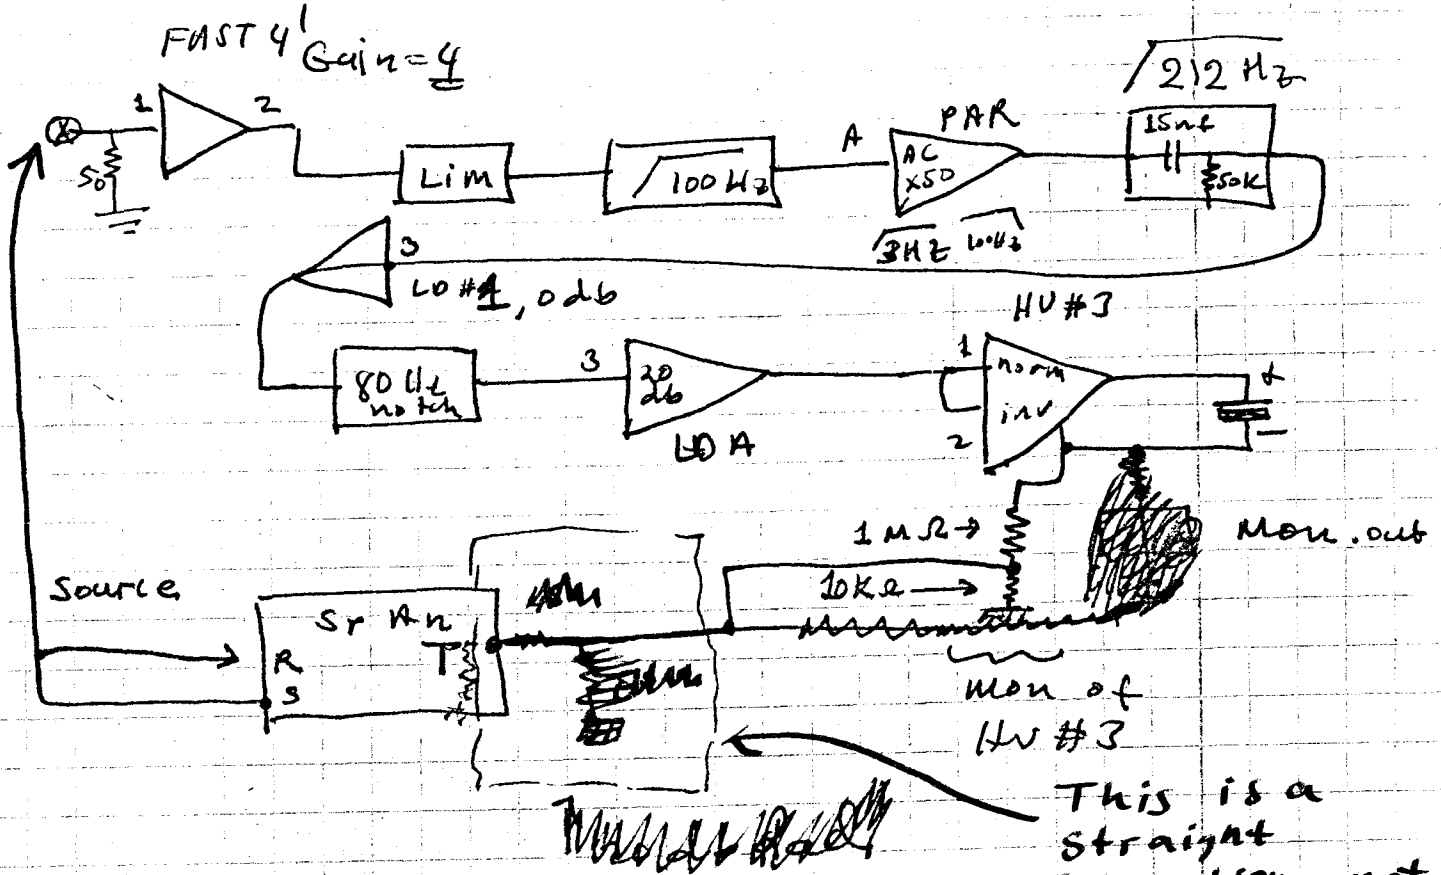 FAST 4'
Gain = 4
212 Hz
1
2
50
Lim
100 Hz
A
PAR
AC
x50
15nf
50K
3Hz
100Hz
3
LD #1, 0 db
HV #3
80 Hz
notch
3
20
db
LDA
1
norm
inv
2
+
−
1 MΩ →
10KΩ →
Mon. out
Source
Sr An
T
R
S
mon of
HV #3
This is a
straight